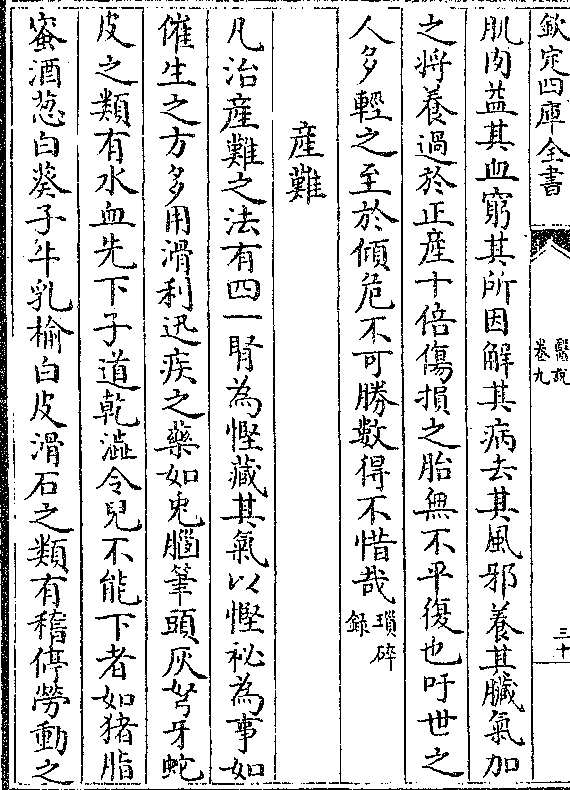 欽定四庫全書
醫說
卷九
三十
肌肉益其血窮其所因解其病去其風邪養其臟氣加
之將養過於正產十倍傷損之胎無不平復也吁世之
人多輕之至於傾危不可勝數得不惜哉瑣碎
錄
產難
凡治產難之法有四一腎為慳藏其氣以慳祕為事如
催生之方多用滑利迅疾之藥如兔腦筆頭灰弩牙蛇
皮之類有水血先下子道乾澁令兒不能下者如猪脂
蜜酒葱白葵子牛乳榆白皮滑石之類有稽停勞動之